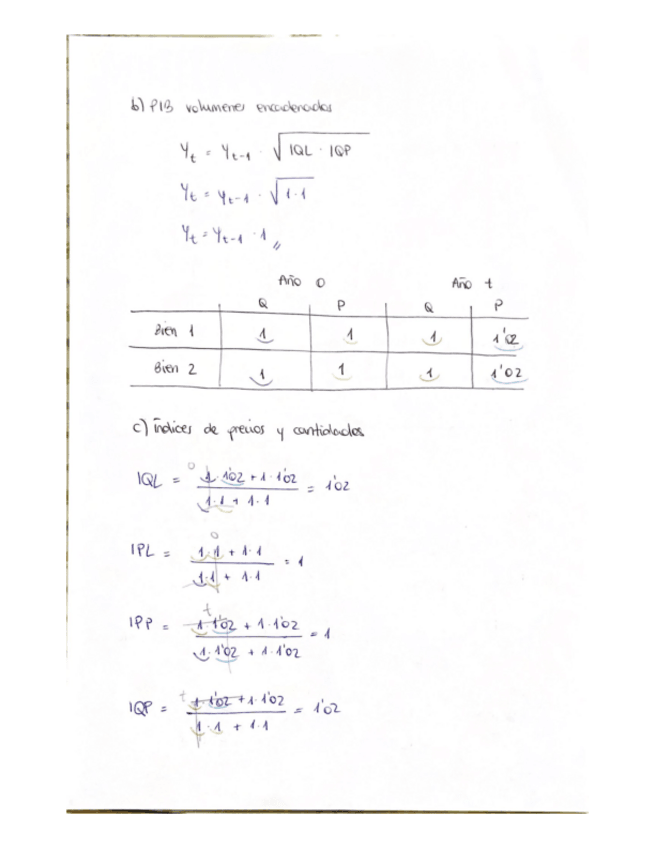 b) PIB volumenes encadenados
Yt = Yt-1 · √IQL · IQP
Yt = Yt-1 · √1·1
Yt = Yt-1 · 1 //
Año 0 Año t
Q P Q P
Bien 1 1 1 1 1'02
Bien 2 1 1 1 1'02
c) índices de precios y cantidades
IQL = 0 1·1'02 + 1·1'02 / 1·1 + 1·1 = 1'02
0
IPL = 1·1 + 1·1 / 1·1 + 1·1 = 1
t
IPP = 1·1'02 + 1·1'02 / 1·1'02 + 1·1'02 = 1
IQP = t 1·1'02 + 1·1'02 / 1·1 + 1·1 = 1'02